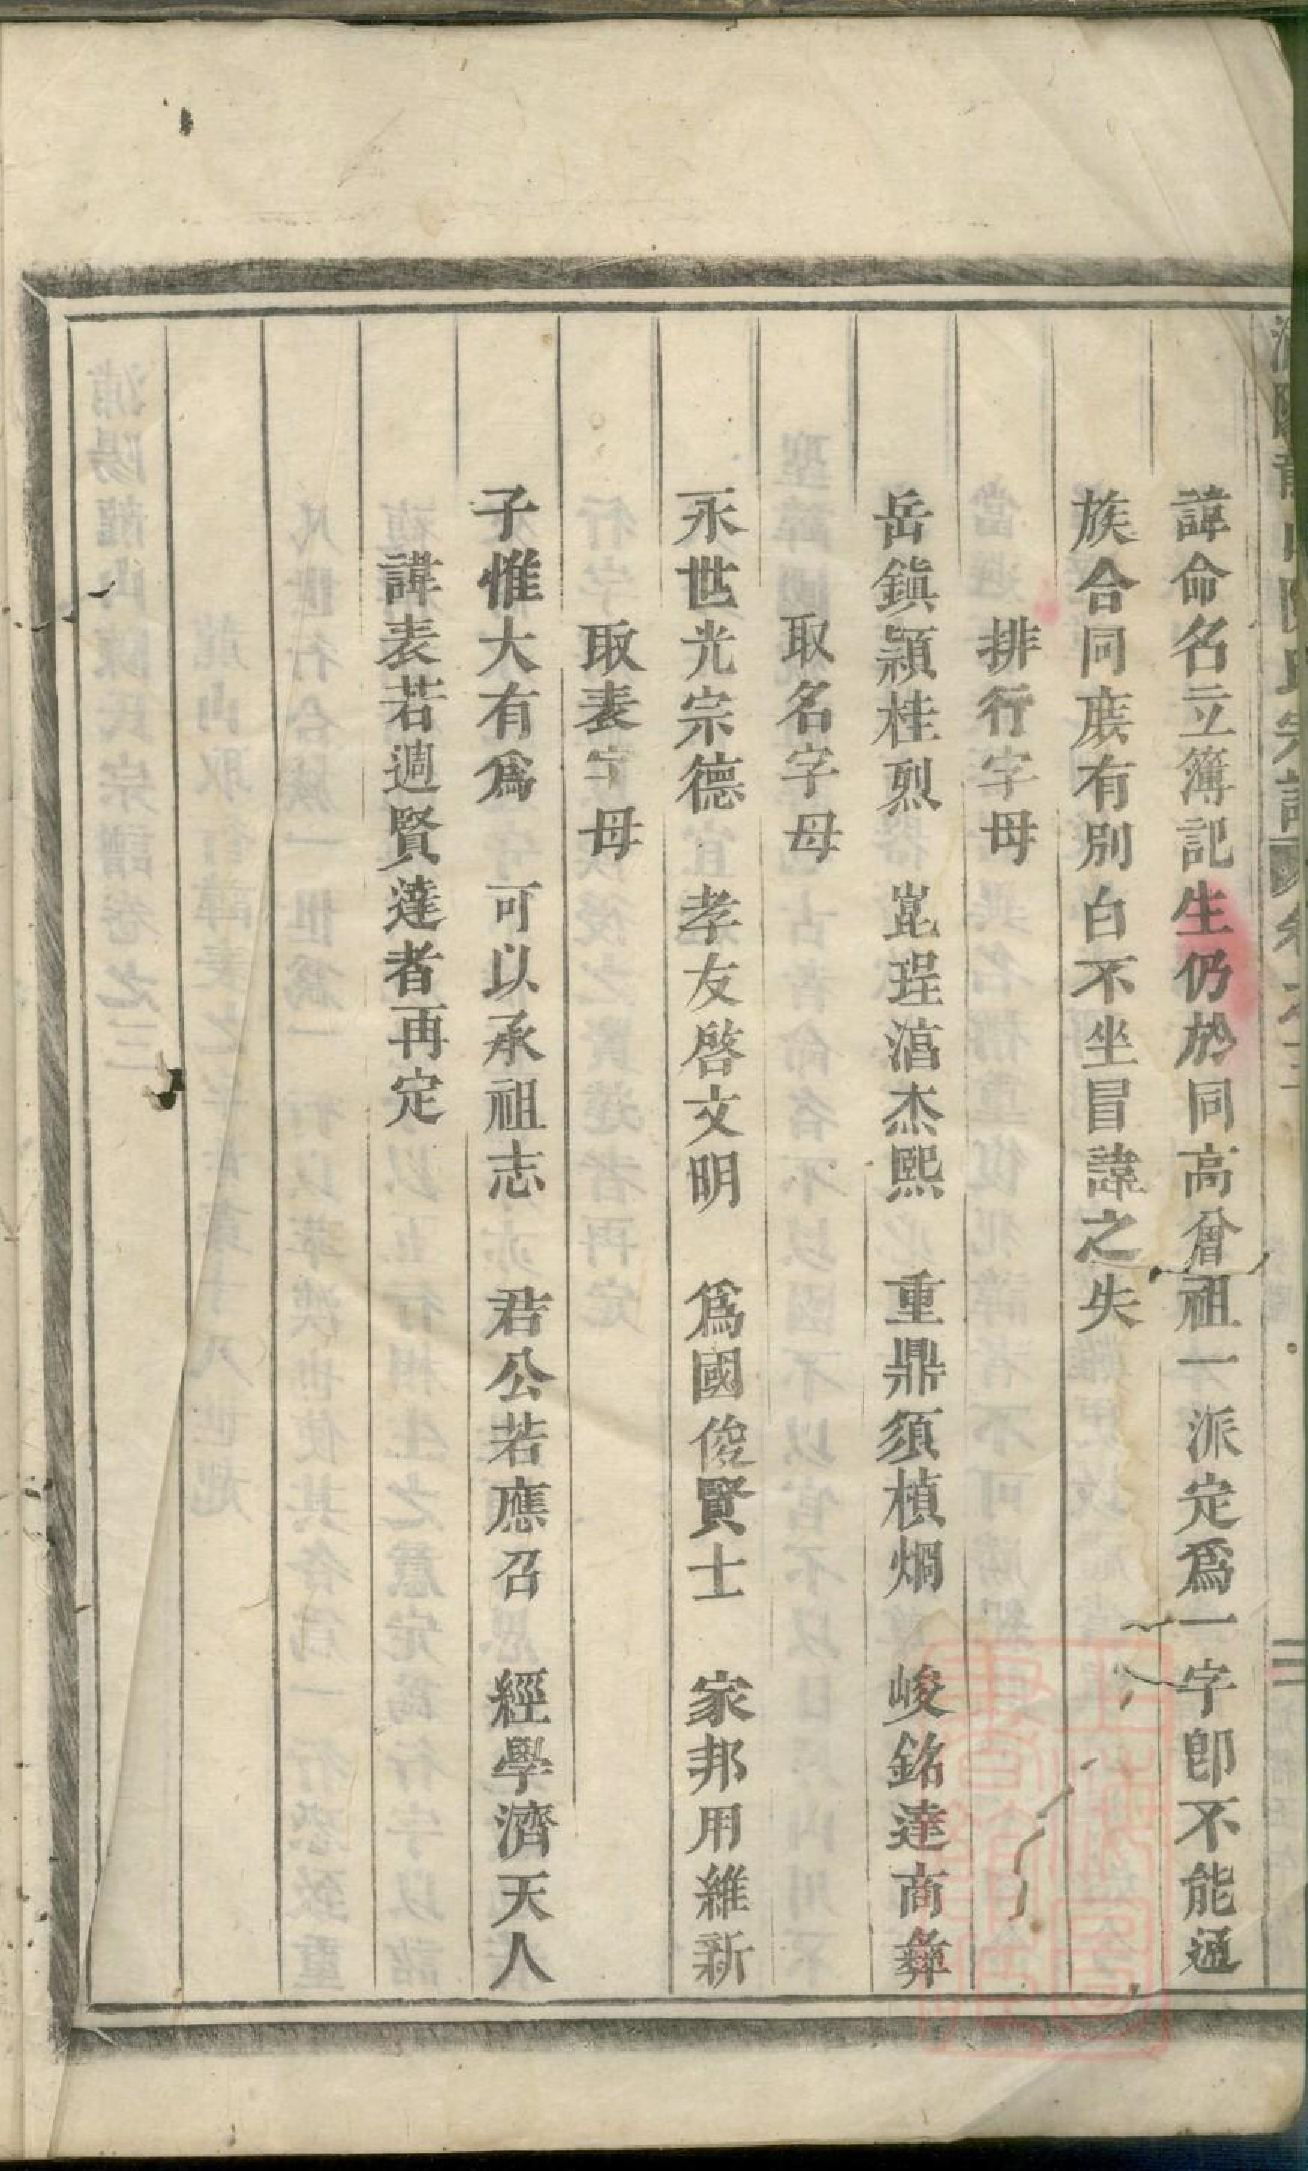 諱命名立簿記生仍於同高曾祖一派定爲一字卽不能通
族合同族有別白不坐冒諱之失
排行字母
岳鎮穎桂烈 崑珵湻杰熙 重鼎須楨烱 峻銘達商彝
取名字母
永世光宗德 孝友啓文明 爲國俊賢士 家邦用維新
取表字母
子惟大有爲 可以承祖志 君公若應召 經學濟天人
諱表若週賢達者再定